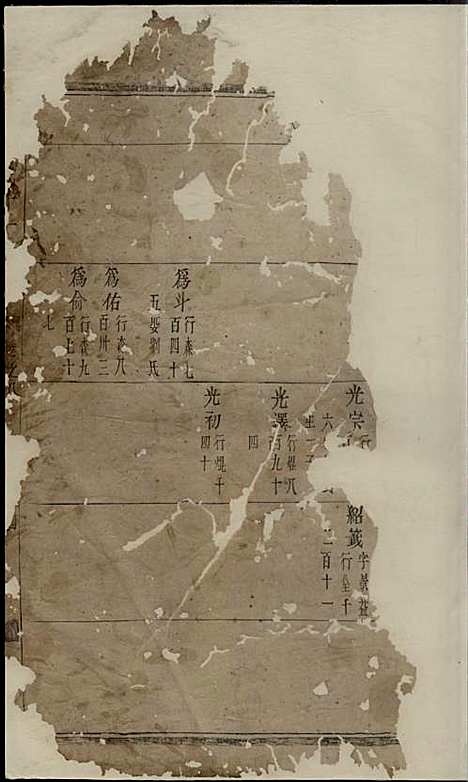 為斗
行森七
百四十
五娶劉氏
為佑
行森八
百卅三
為侖
行森九
百七十
七
光宗
行
六
生一子
光澤
行焜八
百九十
四
光初
行焜千
四十
紹籛
字
行千
二百十一